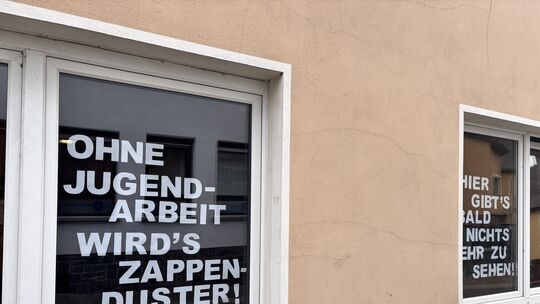 OHNE
JUGEND-
ARBEIT
WIRD'S
ZAPPEN-
DUSTER!
HIER
GIBT'S
BALD
NICHTS
EHR ZU
SEHEN!